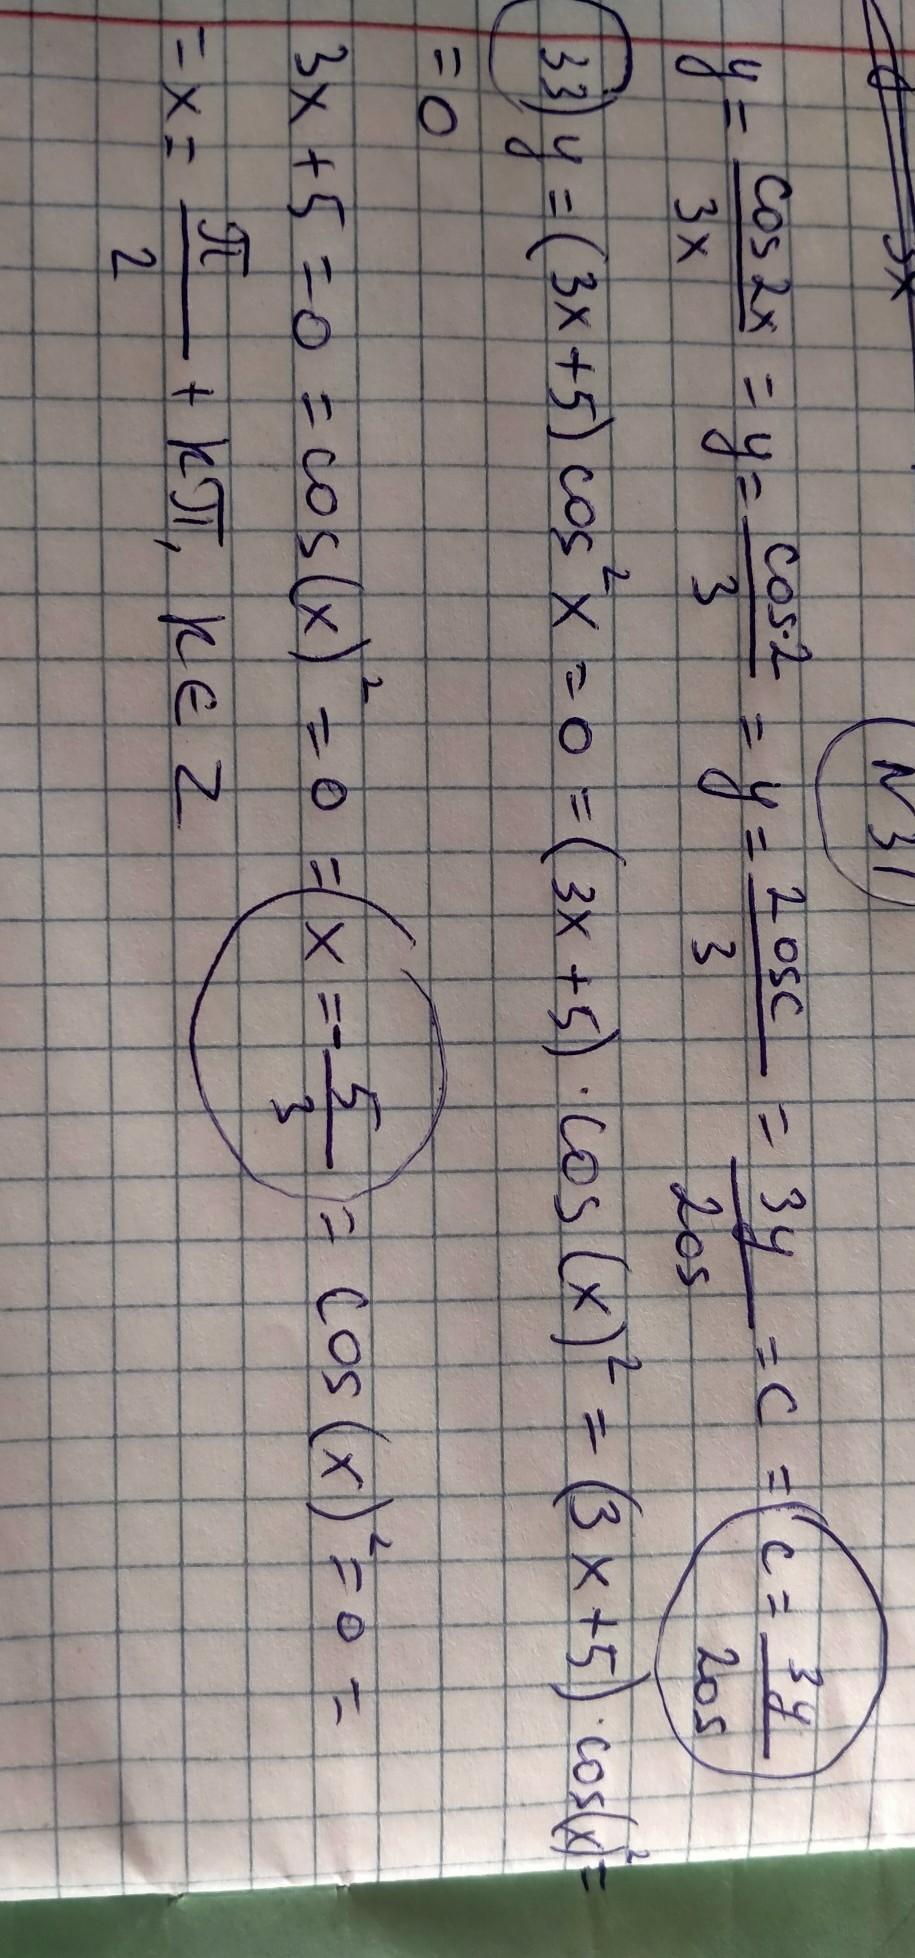 N 31
y = cos 2x / 3x = y = cos·2 / 3 = y = 2osc / 3 = 3y / 2os = c = c = 3y / 2os
33) y = (3x + 5) cos² x = 0 = (3x + 5) · cos (x)² = (3x + 5) · cos(x)² =
= 0
3x + 5 = 0 = cos(x)² = 0 = x = - 5 / 3 = cos (x)² = 0 =
= x = π / 2 + kπ, k ∈ Z